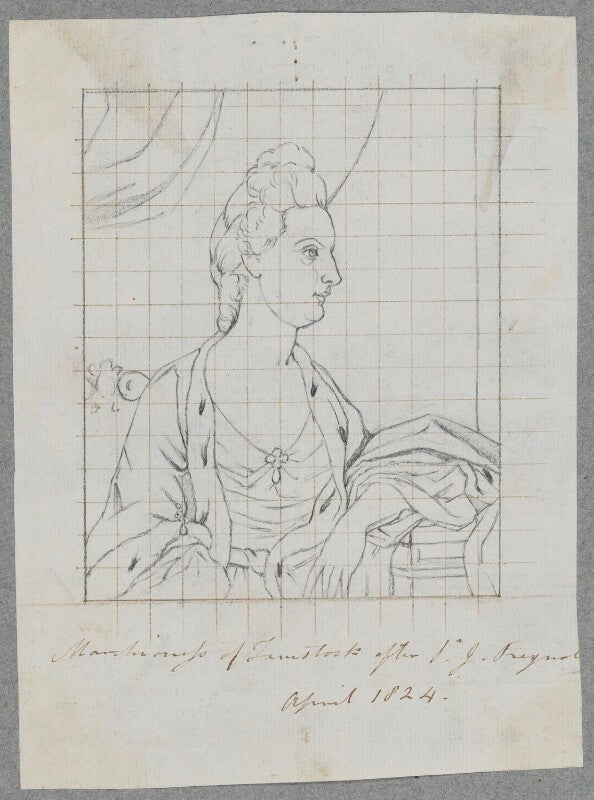 Marchioness of Tavistock after Sr. J. Reynol
April 1824.